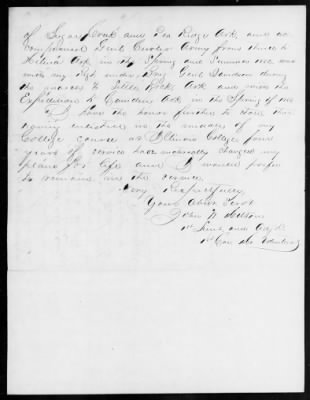 of Sugar Creek and Pea Ridge Ark and ac
companied Genl Curtis' Army from thence to
Helena Ark in the Spring and Summer 1862 was
with my Regt under Maj Genl during
the march to Little Rock, Ark and with the
Expedition to Camden Ark in the Spring of 1864
I have the honor further to state that
having enlisted in the midst of my
College course at Illinois College four
years of service have materially changed my
plans for life and I would prefer
to remain in the service.
Very Respectfully
Your Obdt Servt
John
1st Lieut and Adjt
1st Cav Mo